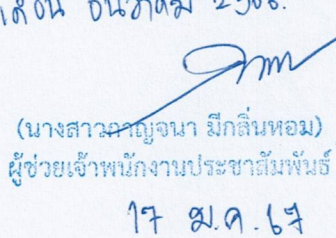 เดือน ธันวาคม 2566.
(นางสาวกาญจนา มีกลิ่นหอม)
ผู้ช่วยเจ้าพนักงานประชาสัมพันธ์
17 ม.ค. 67